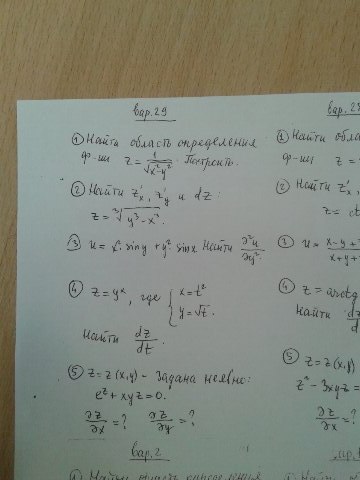 вар. 29
① Найти область определения
ф-ии z = 1/√(x²-y²). Построить.
② Найти z'x, z'y и dz:
z = ³√(y³-x³).
③ u = x² sin y + y² sin x. Найти
④ z = yˣ, где { x = t²
y = √t.
Найти dz/dt.
⑤ z = z(x,y) – задана неявно:
e^z + xyz = 0.
∂z/∂x = ? ∂z/∂y = ?
вар. 2
① Найти область определения
вар. 2
① Найти обла
ф-ии z =
② Найти z'x,
z =
③ u = x-y+
x+y+
④ z = arctg
Найти
⑤ z = z(x,y)
z² - 3xyz =
∂z/∂x = ?